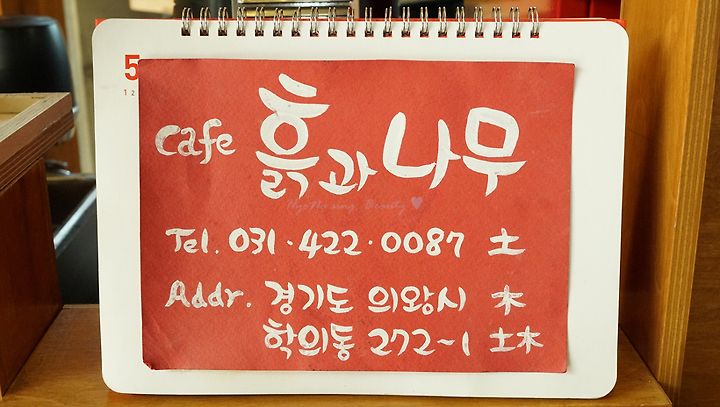 5
1 2
Cafe 흙과나무
Tel. 031·422·0087 土
Addr. 경기도 의왕시 木
학의동 272~1 土木